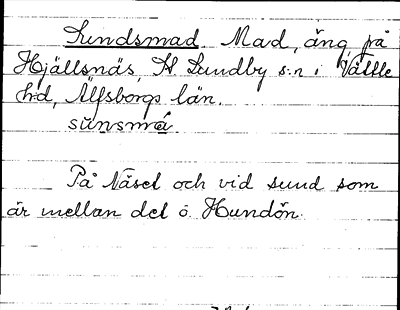 Sundsmad. Mad, äng på
Hjällsnäs, St. Lundby s:n i Vättle
h:d, Älfsborgs län.
sŭnsmá.
På Näset och vid sund som
är mellan det o. Hundön.